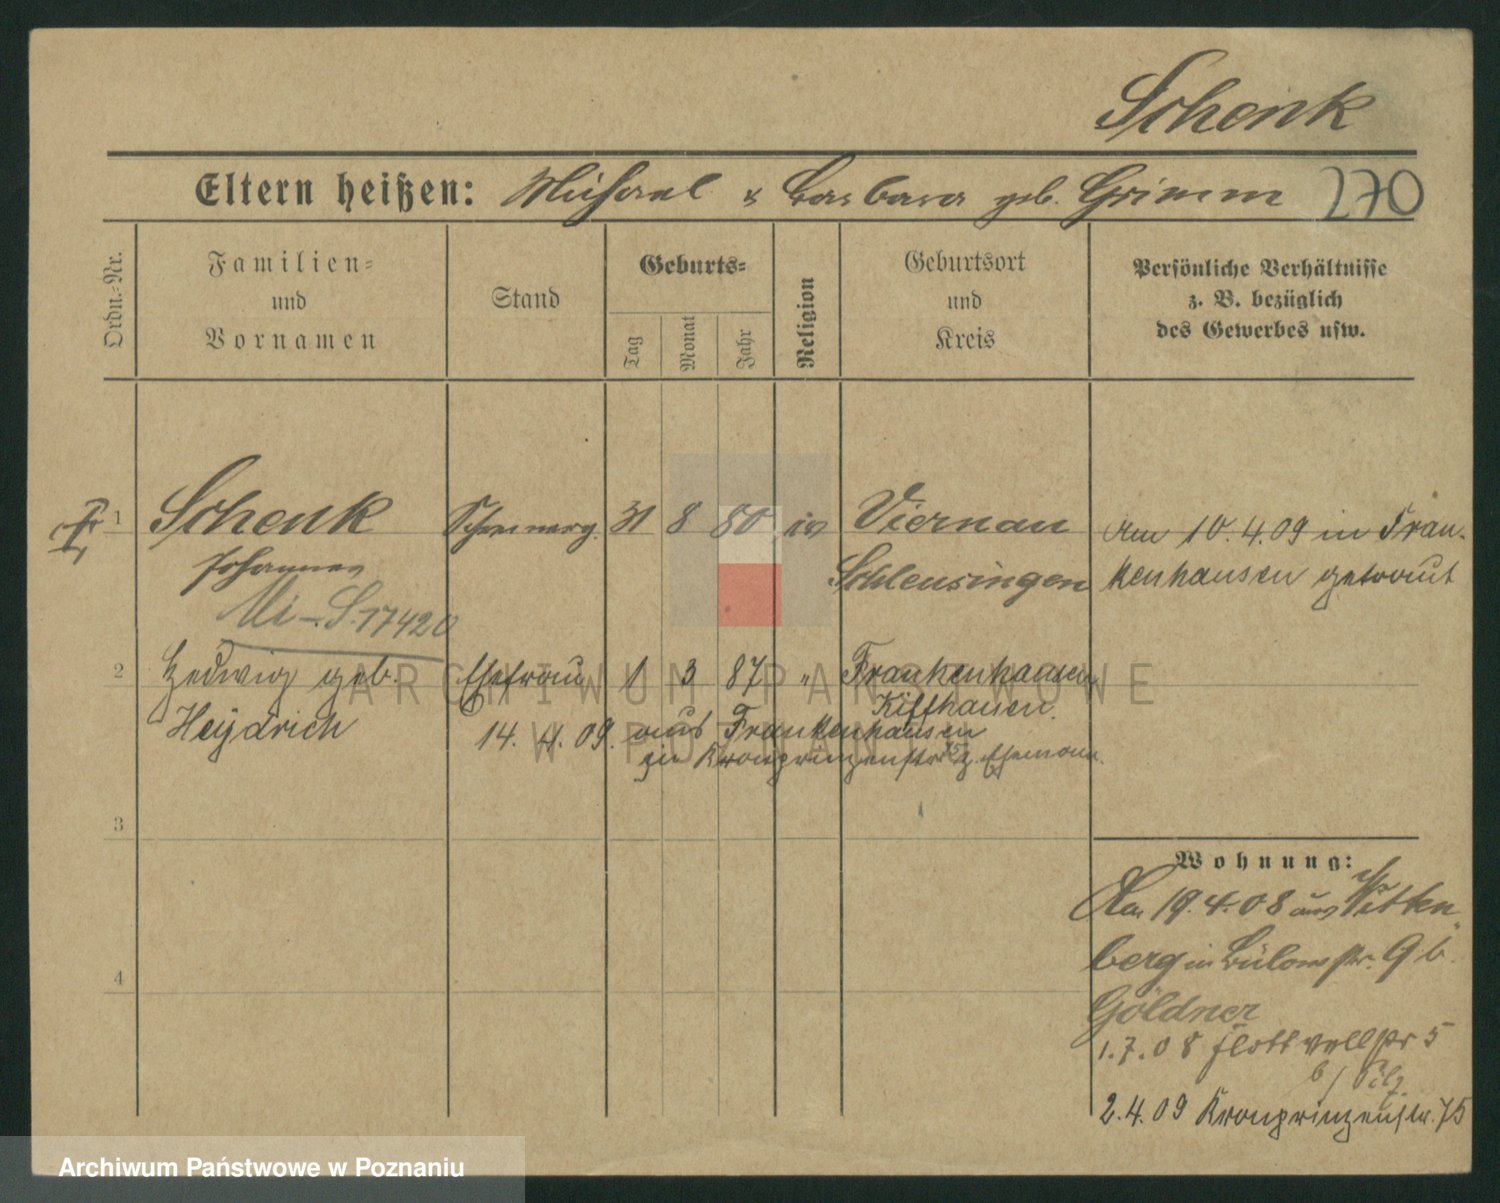 Schenk
Eltern heißen: Michael & Barbara geb. Grimm 270
Ordn.-Nr.
Familien-
und
Vornamen
Stand
Geburts-
Tag
Monat
Jahr
Religion
Geburtsort
und
Kreis
Persönliche Verhältnisse
z. B. bezüglich
des Gewerbes usw.
1 Schenk 31 8 80 ev Viernau Am 10.4.09 in Fran-
Johannes Schleusingen kenhausen getraut
Mi-S.17420
2 Hedwig geb. Ehefrau 1 3 87 " Frankenhausen
Kiffhausen.
Heydrich 14. 4. 09. aus Frankenhausen
zu Kronprinzenstr 75 z. Ehemann.
3
4
Wohnung:
Am 19.4.08 aus Witten-
berg in Bülowstr. 9 b.
Göldner
1.7.08 Flottwellstr 5
b/ Pilz.
2.4.09 Kronprinzenstr. 75
ARCHIWUM PAŃSTWOWE
W POZNANIU
Archiwum Państwowe w Poznaniu